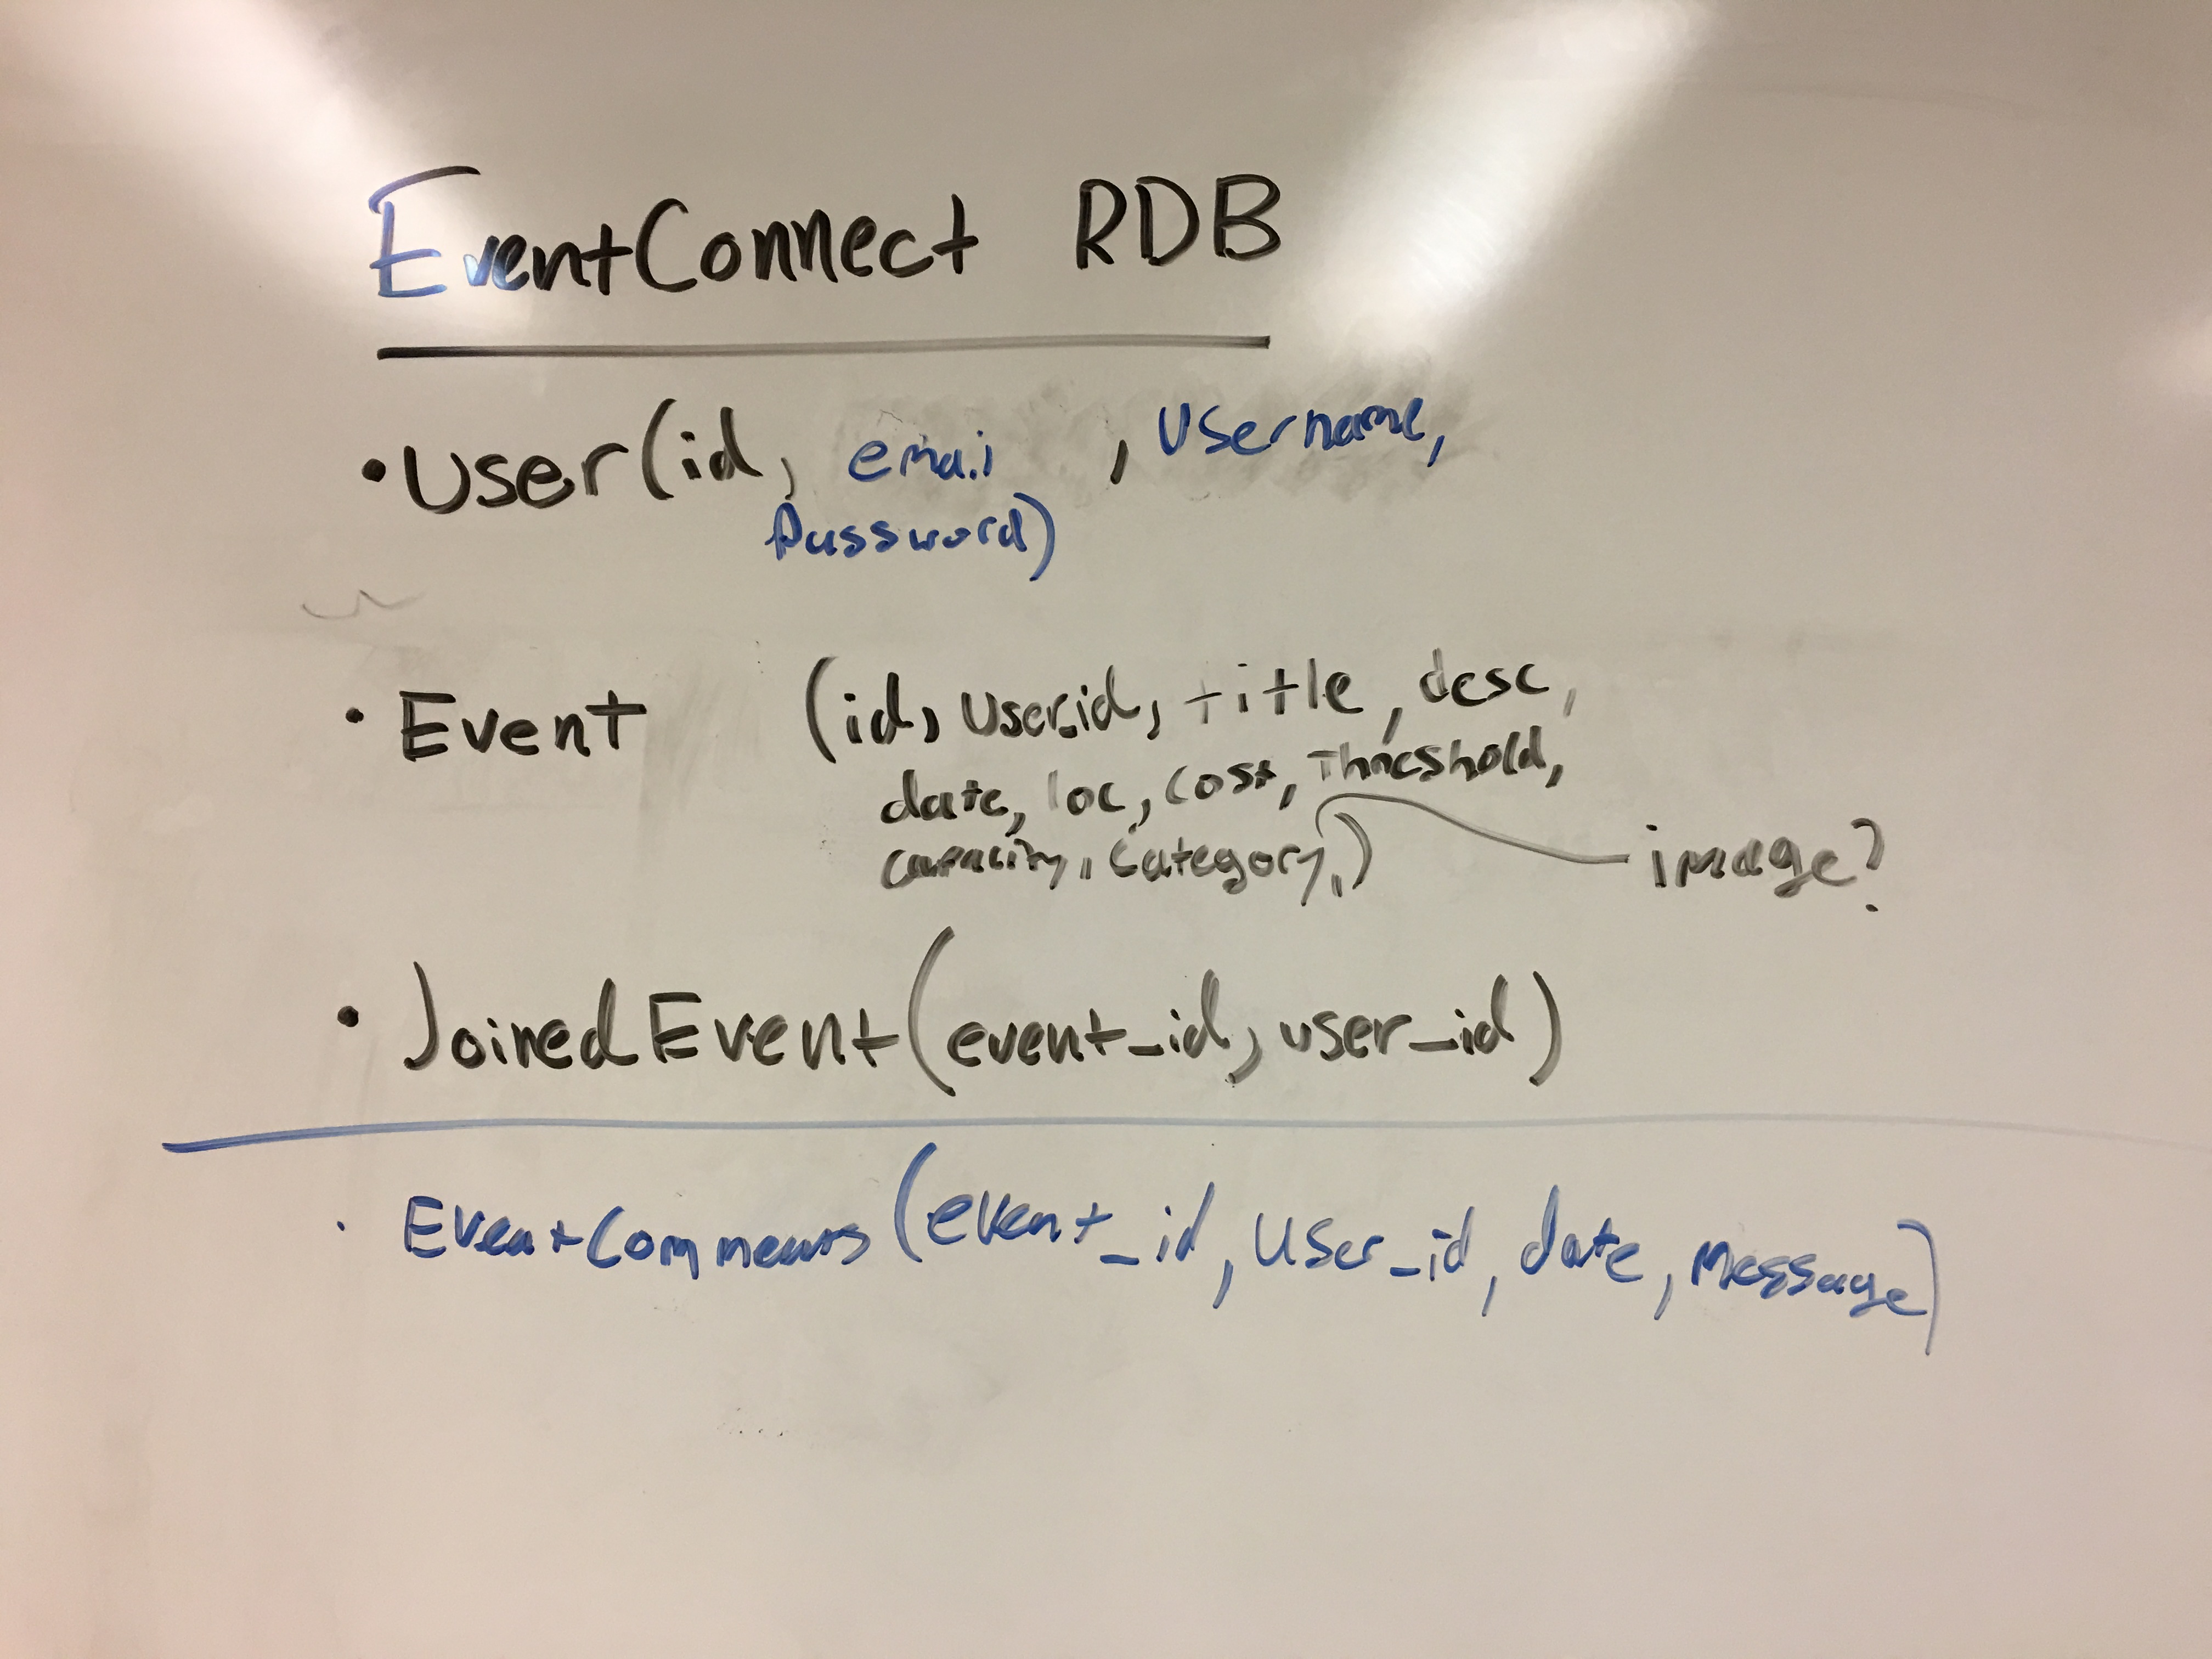 EventConnect RDB
• User (id, email, Username,
Password)
• Event (id, user_id, title, desc,
date, loc, cost, Threshold,
capacity, category,) image?
• JoinedEvent (event_id, user_id)
• EventComments (event_id, user_id, date, message)